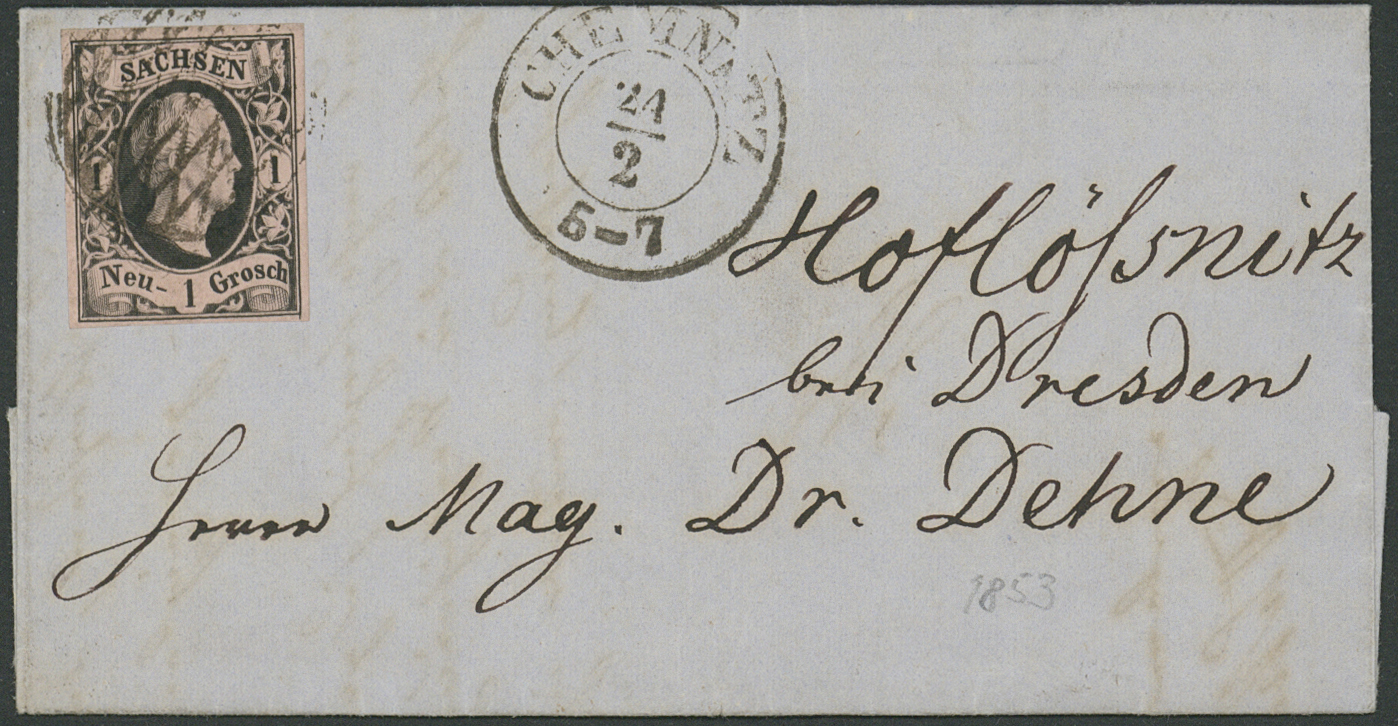 SACHSEN
1 1
Neu- 1 Grosch
CHEMNITZ
24
2
5-7
Hoflößnitz
bei Dresden
Herrn Mag. Dr. Dehne
1853